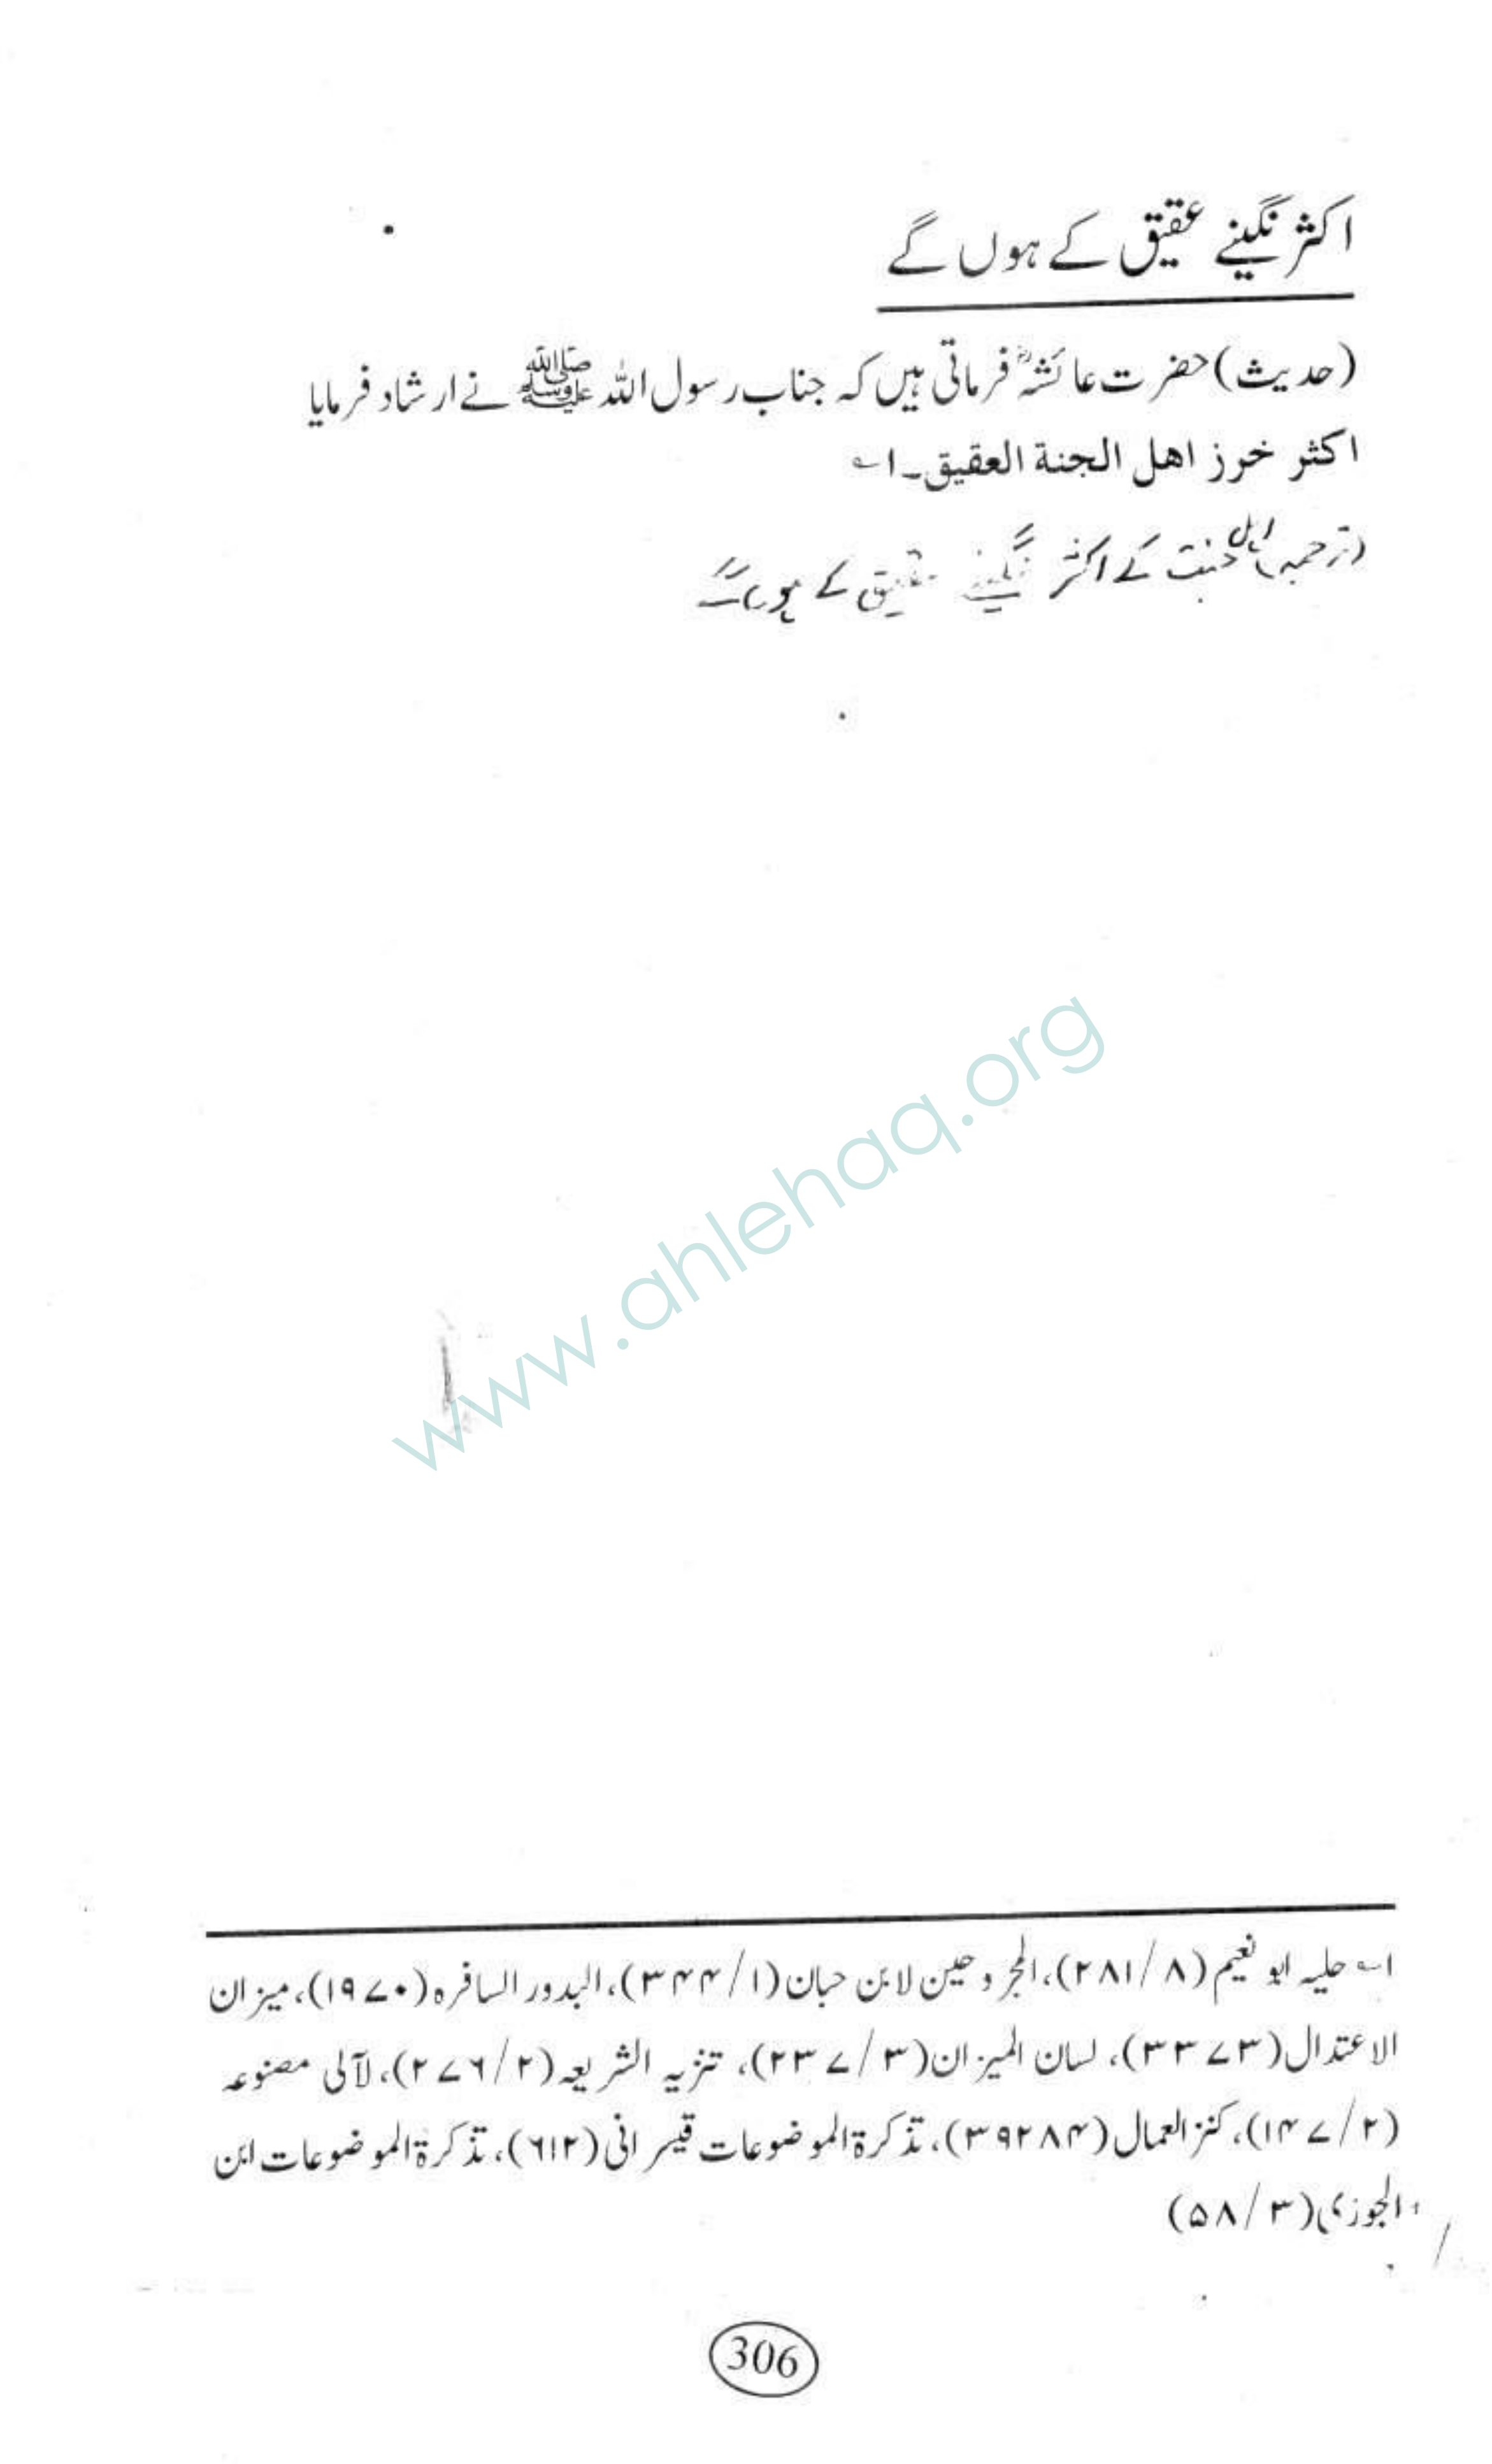 اکثر نگینے عقیق کے ہوں گے
(حدیث) حضرت عائشہؓ فرماتی ہیں کہ جناب رسول اللہ ﷺ نے ارشاد فرمایا
اکثر خرز اهل الجنة العقیق۔ا؎
(ترجمہ) اہل جنت کے اکثر نگینے عقیق کے ہوں گے
www.ahlehaq.org
ا؎ حلیہ ابو نعیم (۸/۲۸۱)، المجروحین لابن حبان (۱/۳۴۴)، البدور السافرہ (۱۹۷۰)، میزان
الاعتدال (۳۳۷۳)، لسان المیزان (۳/۲۳۷)، تنزیہ الشریعہ (۲/۲۷۶)، لآلی مصنوعہ
(۲/۱۴۷)، کنز العمال (۳۹۲۸۴)، تذکرۃ الموضوعات قیسرانی (۶۱۲)، تذکرۃ الموضوعات ابن
الجوزی (۳/۵۸)
306